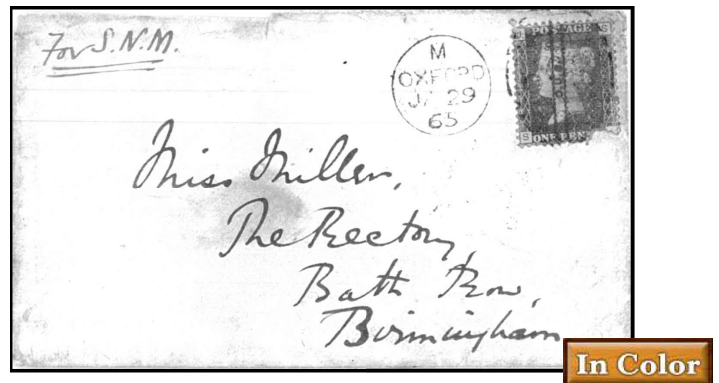 For S.N.M.
M
OXFORD
JA 29
65
POSTAGE
S
S
ONE PEN
Miss Miller,
The Rectory
Bath Row,
Birmingham
In Color